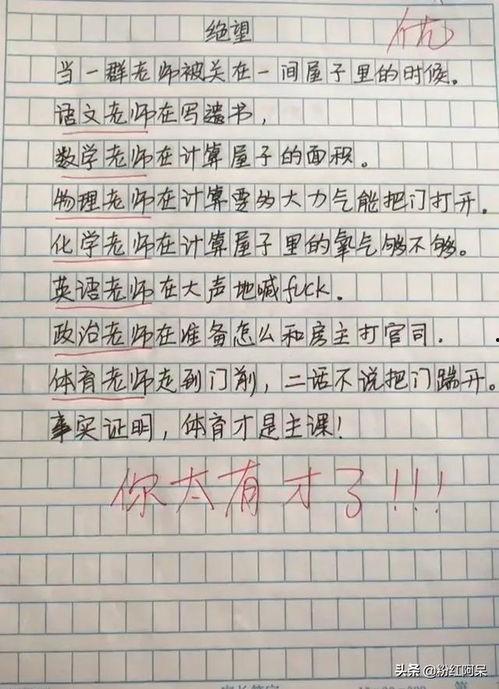 绝望
优
当一群老师被关在一间屋子里的时候。
语文老师在写遗书,
数学老师在计算屋子的面积。
物理老师在计算要多大力气能把门打开.
化学老师在计算屋子里的氧气够不够。
英语老师在大声地喊fuck.
政治老师在准备怎么和房主打官司.
体育老师走到门前,二话不说把门踹开。
事实证明,体育才是主课!
你太有才了!!!
头条 @粉红阿呆